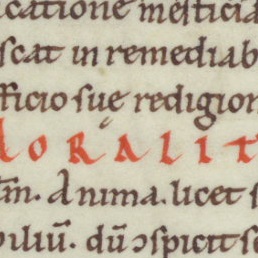 catione mesticia
scat in remediab
fficio suę redigion
ORALIT
m̄. Anima. licet s
biliū. dū ɔspicit se